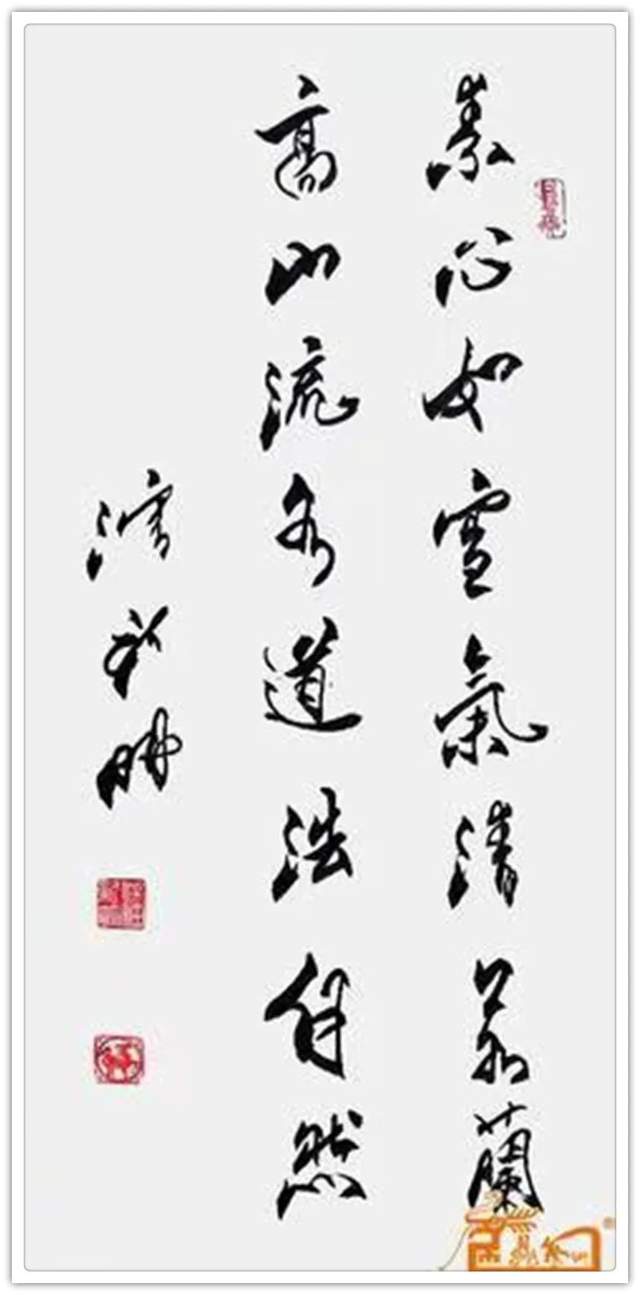 素心如雪氣清若蘭
高山流水道法自然
明